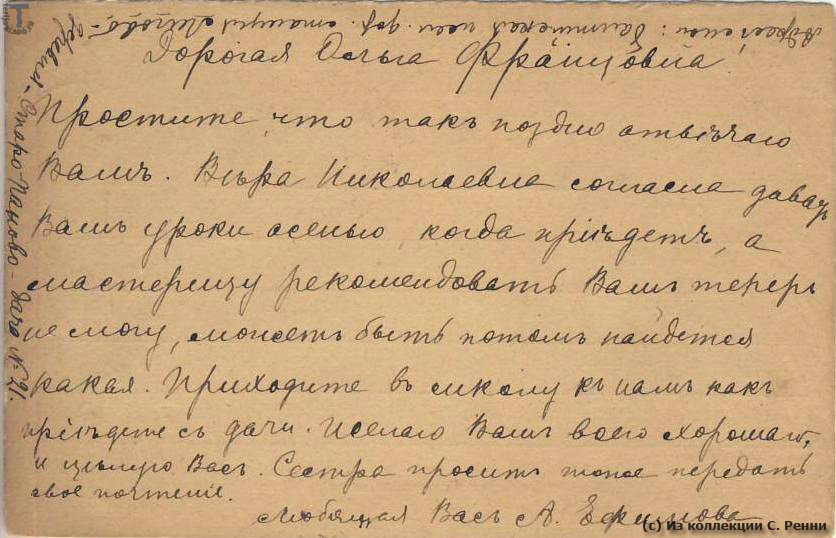 Дорогая Ольга Францовна!
Простите, что такъ поздно отвѣчаю
Вамъ. Вѣра Николаевна согласна давать
Вамъ уроки осенью, когда пріѣдетъ, а
мастерицу рекомендовать Вамъ теперь
не могу, можетъ быть потомъ найдется
какая. Приходите въ школу къ намъ какъ
пріѣдете съ дачи. Желаю Вамъ всего хорошаго,
и цѣлую Васъ. Сестра проситъ тоже передать
свое почтеніе.
Любящая Васъ А. Ефимова
Адресъ мой: Балтійская жел. дор. станція Лигово-
деревня-Старо-Паново-дача № 21.
(с) Из коллекции С. Ренни